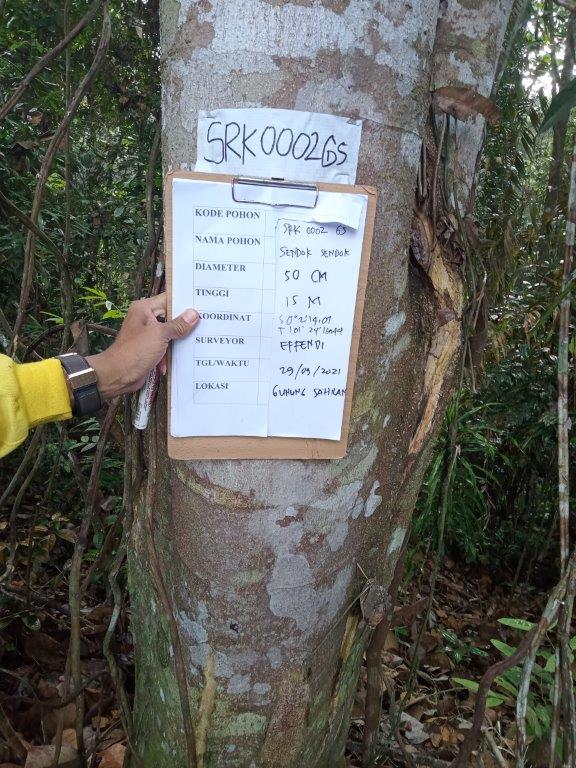 SRK0002GS
KODE POHON SRK 0002 GS
NAMA POHON SENDOK SENDOK
DIAMETER 50 CM
TINGGI 15 M
KOORDINAT
SURVEYOR EFFENDI
TGL/WAKTU 29/09/2021
LOKASI GUNUNG SAHILAN